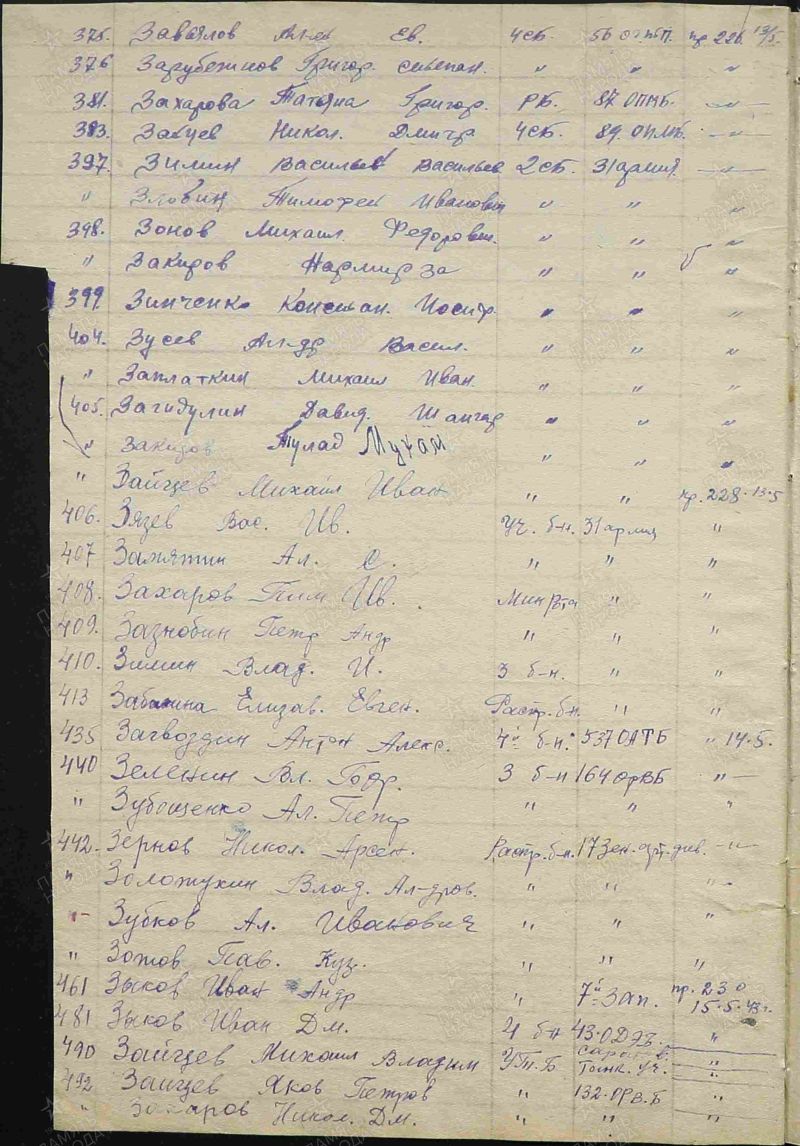 375. Завьялов Ев. 4сб. пр 226. 13/5.
376 Зарубежнов Григор. степан. " " "
381. Захарова Татьяна Григор. РБ. 87 ОПМБ. — " —
383. Зайцев Никол. Дмитр 4сб. 89. ОПМБ. — " —
397. Зимин Васильев Васильев 2сб. 31 армия. — " —
" Зловин Тимофей Иванович " " "
398. Зонов Михаил. Федорович. " " "
" Закиров " " "
399 Зинченко " " "
404. Зусев Ал-др Васил. " " "
" Заплаткин Михаил Иван " " "
405. Загидулин Давид. " " "
" Закиров Мухам " " "
" Зайцев Михаил Иван " " пр. 228. 13.5
406. Зязев Вас. Ив. Уч. б-н. 31 армия "
407 Замятин Ал. С. " " "
408. Захаров Пим Ив. Мин Рта " "
409. Зазнобин Петр Андр " " "
410. Зимин Влад. И. 3 б-н. " "
413 Забанина Елизав. Евген. Распр. б-н. " "
435 Загвоздин Антон Алекс. 4й б-н. 537 ОАТБ " 14.5.
440 Зеленин Вл. 3 б-н 164 орвб — " —
" Зубощенко Ал. Петр " " "
442. Зернов Никол. Арсен. Распр. б-н. 17 зен. арт. див. — " —
" Золотухин Влад. Ал-дров. " " " —
" — Зубков Ал. Иванович " " "
" Зотов Пав. Куз. " " "
461 Зыков Иван Андр " 7й зап. пр. 230 15.5.43г.
481 Зыков Иван Дм. 4 б-н 43. "
490 Зайцев Михаил Владим УТп. Б. Саратов. Танк. уч. "
492 Зайцев Яков Петров " 132. орв. б "
" Захаров Никол. Дм. " " "